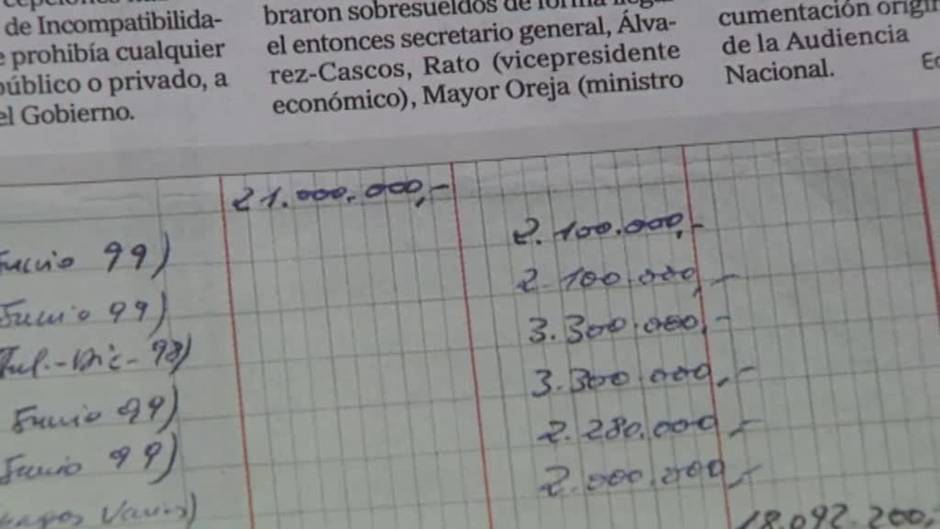 de Incompatibilida-
e prohibía cualquier
público o privado, a
el Gobierno.
braron sobresueldos de forma
el entonces secretario general, Álva-
rez-Cascos, Rato (vicepresidente
económico), Mayor Oreja (ministro
cumentación origin
de la Audiencia
Nacional.
21.000.000,-
Junio 99) 2.100.000,-
Junio 99) 2.100.000,-
Jul.-Dic-98) 3.300.000,-
Junio 99) 3.300.000,-
Junio 99) 2.280.000,-
Varios) 2.000.000,-
18.092.200,-